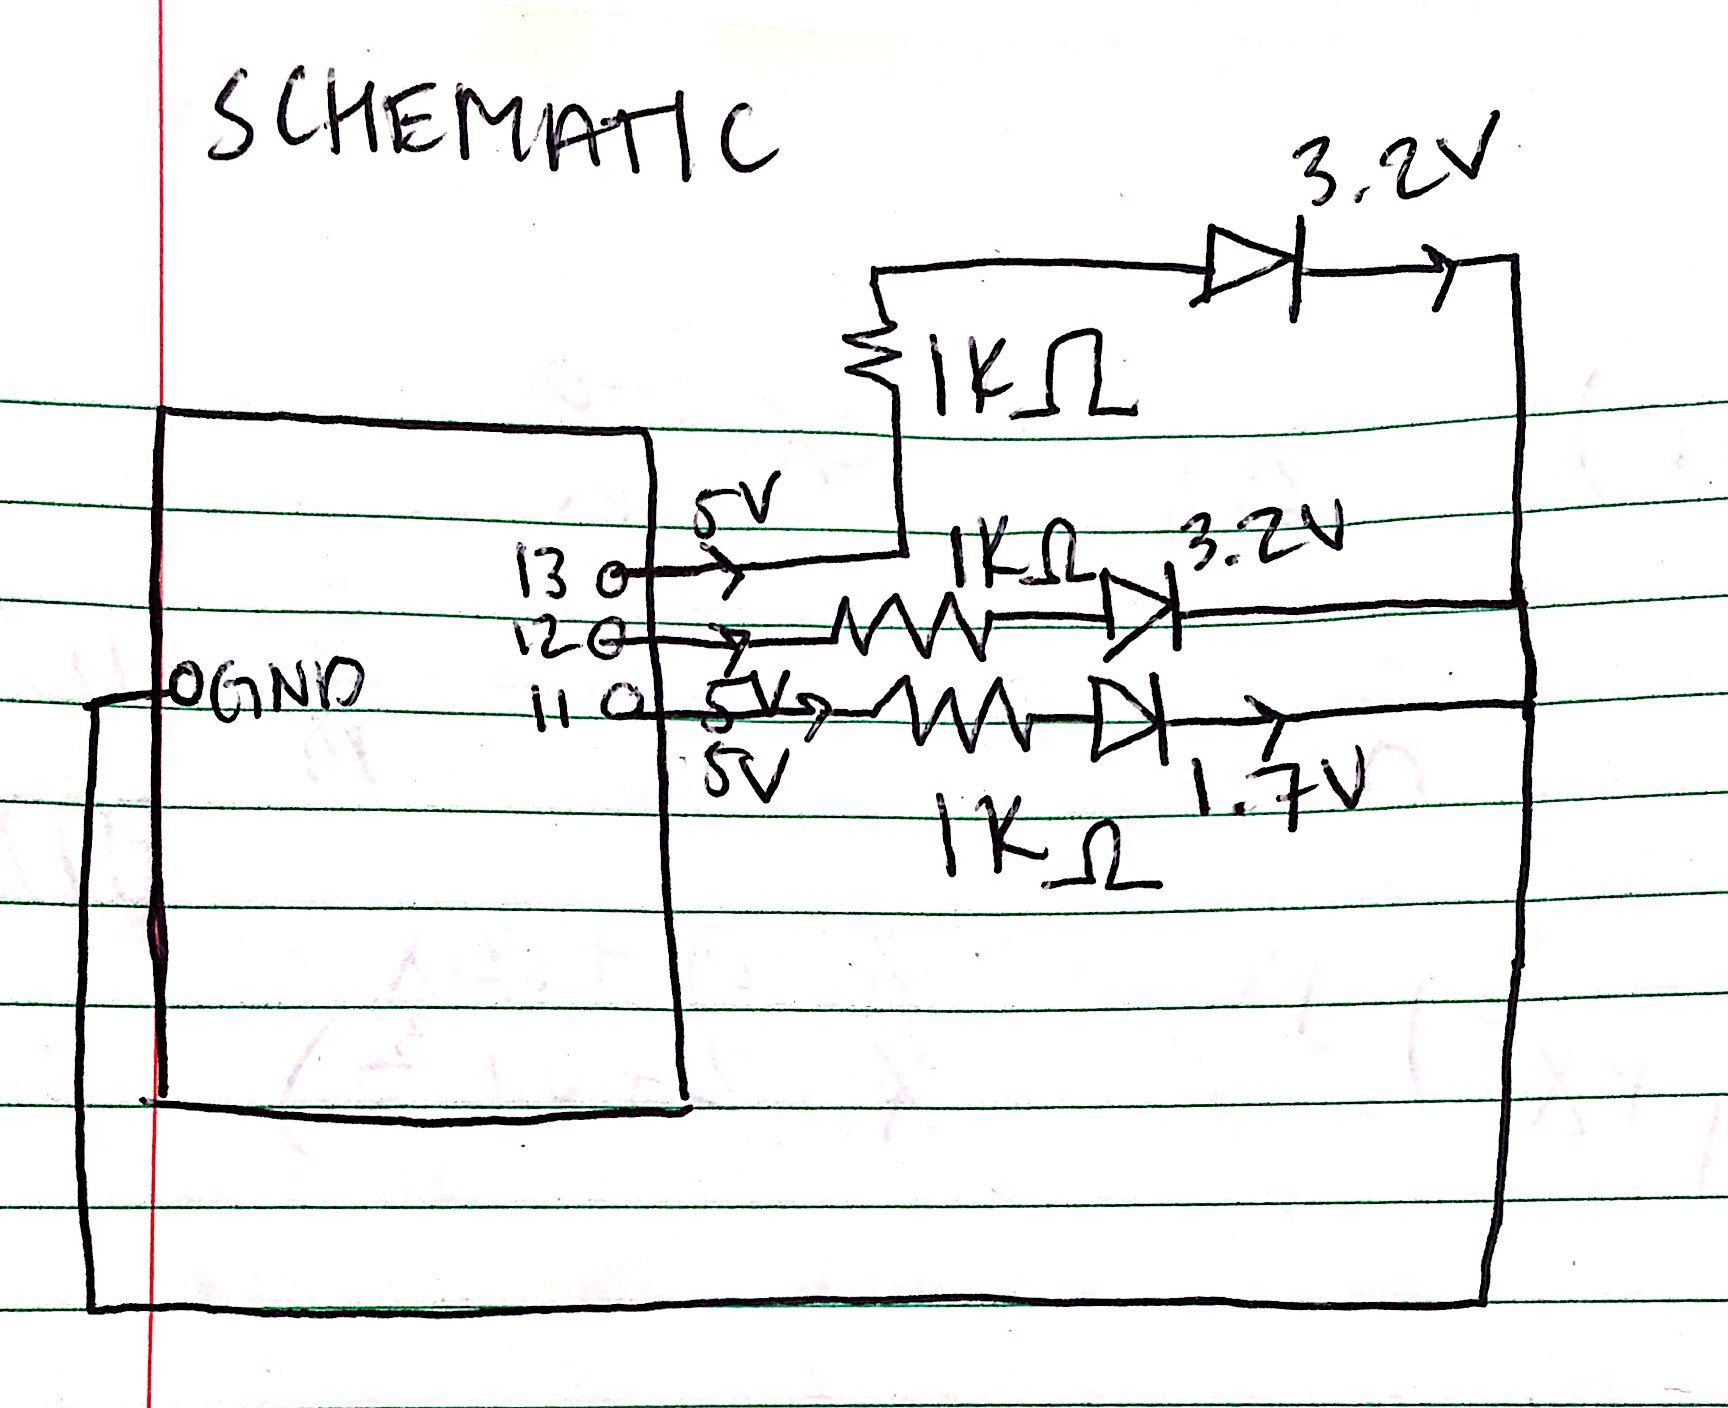 SCHEMATIC
3.2V
1KΩ
5V
1KΩ
3.2V
13
12
GND
11
5V
5V
1.7V
1KΩ